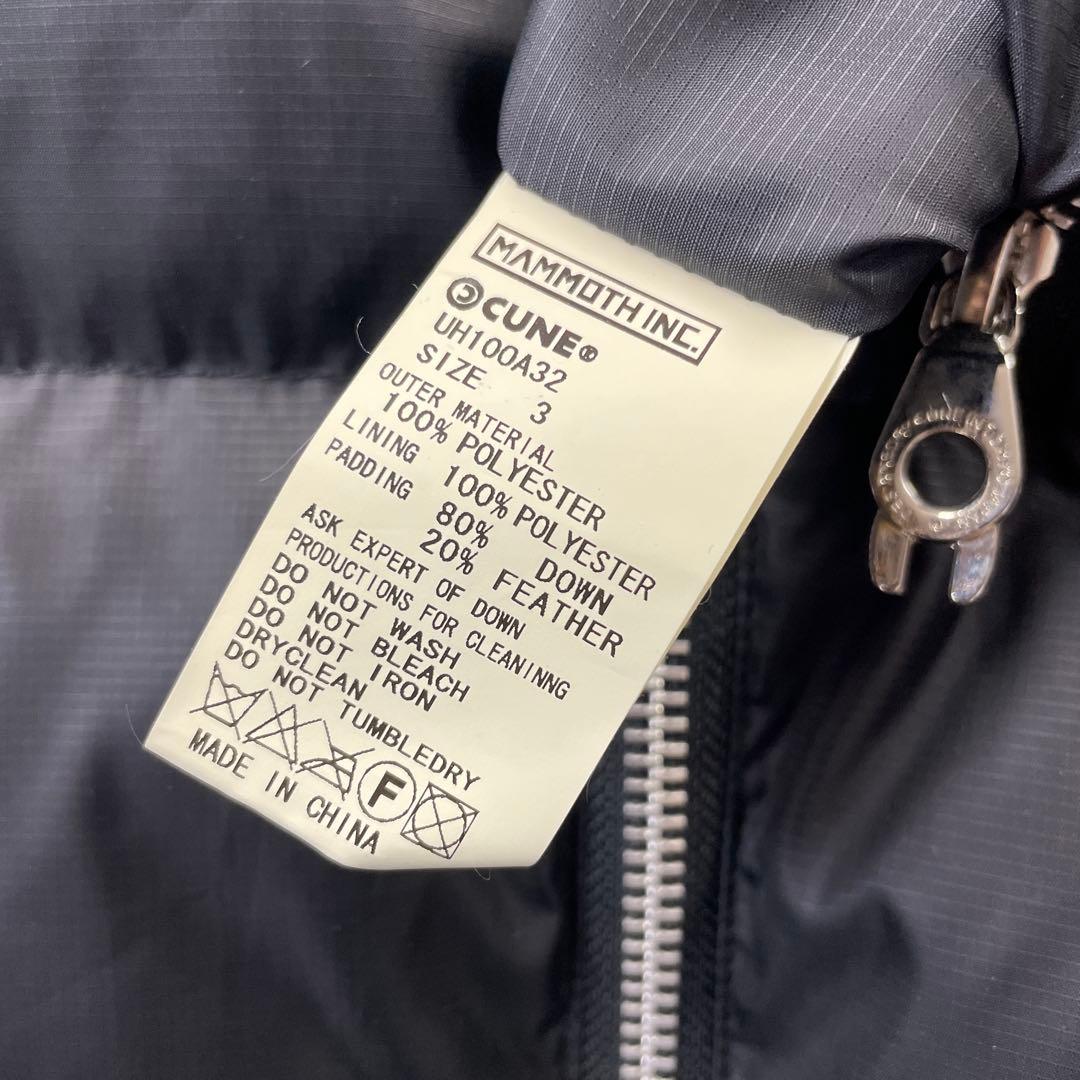 MAMMOTH INC.
CUNE®
UH100A32
SIZE 3
OUTER MATERIAL
100% POLYESTER
LINING 100% POLYESTER
PADDING 80% DOWN
20% FEATHER
ASK EXPERT OF DOWN
PRODUCTIONS FOR CLEANINNG
DO NOT WASH
DO NOT BLEACH
DO NOT IRON
DRYCLEAN
DO NOT TUMBLEDRY
F
MADE IN CHINA
CUNE